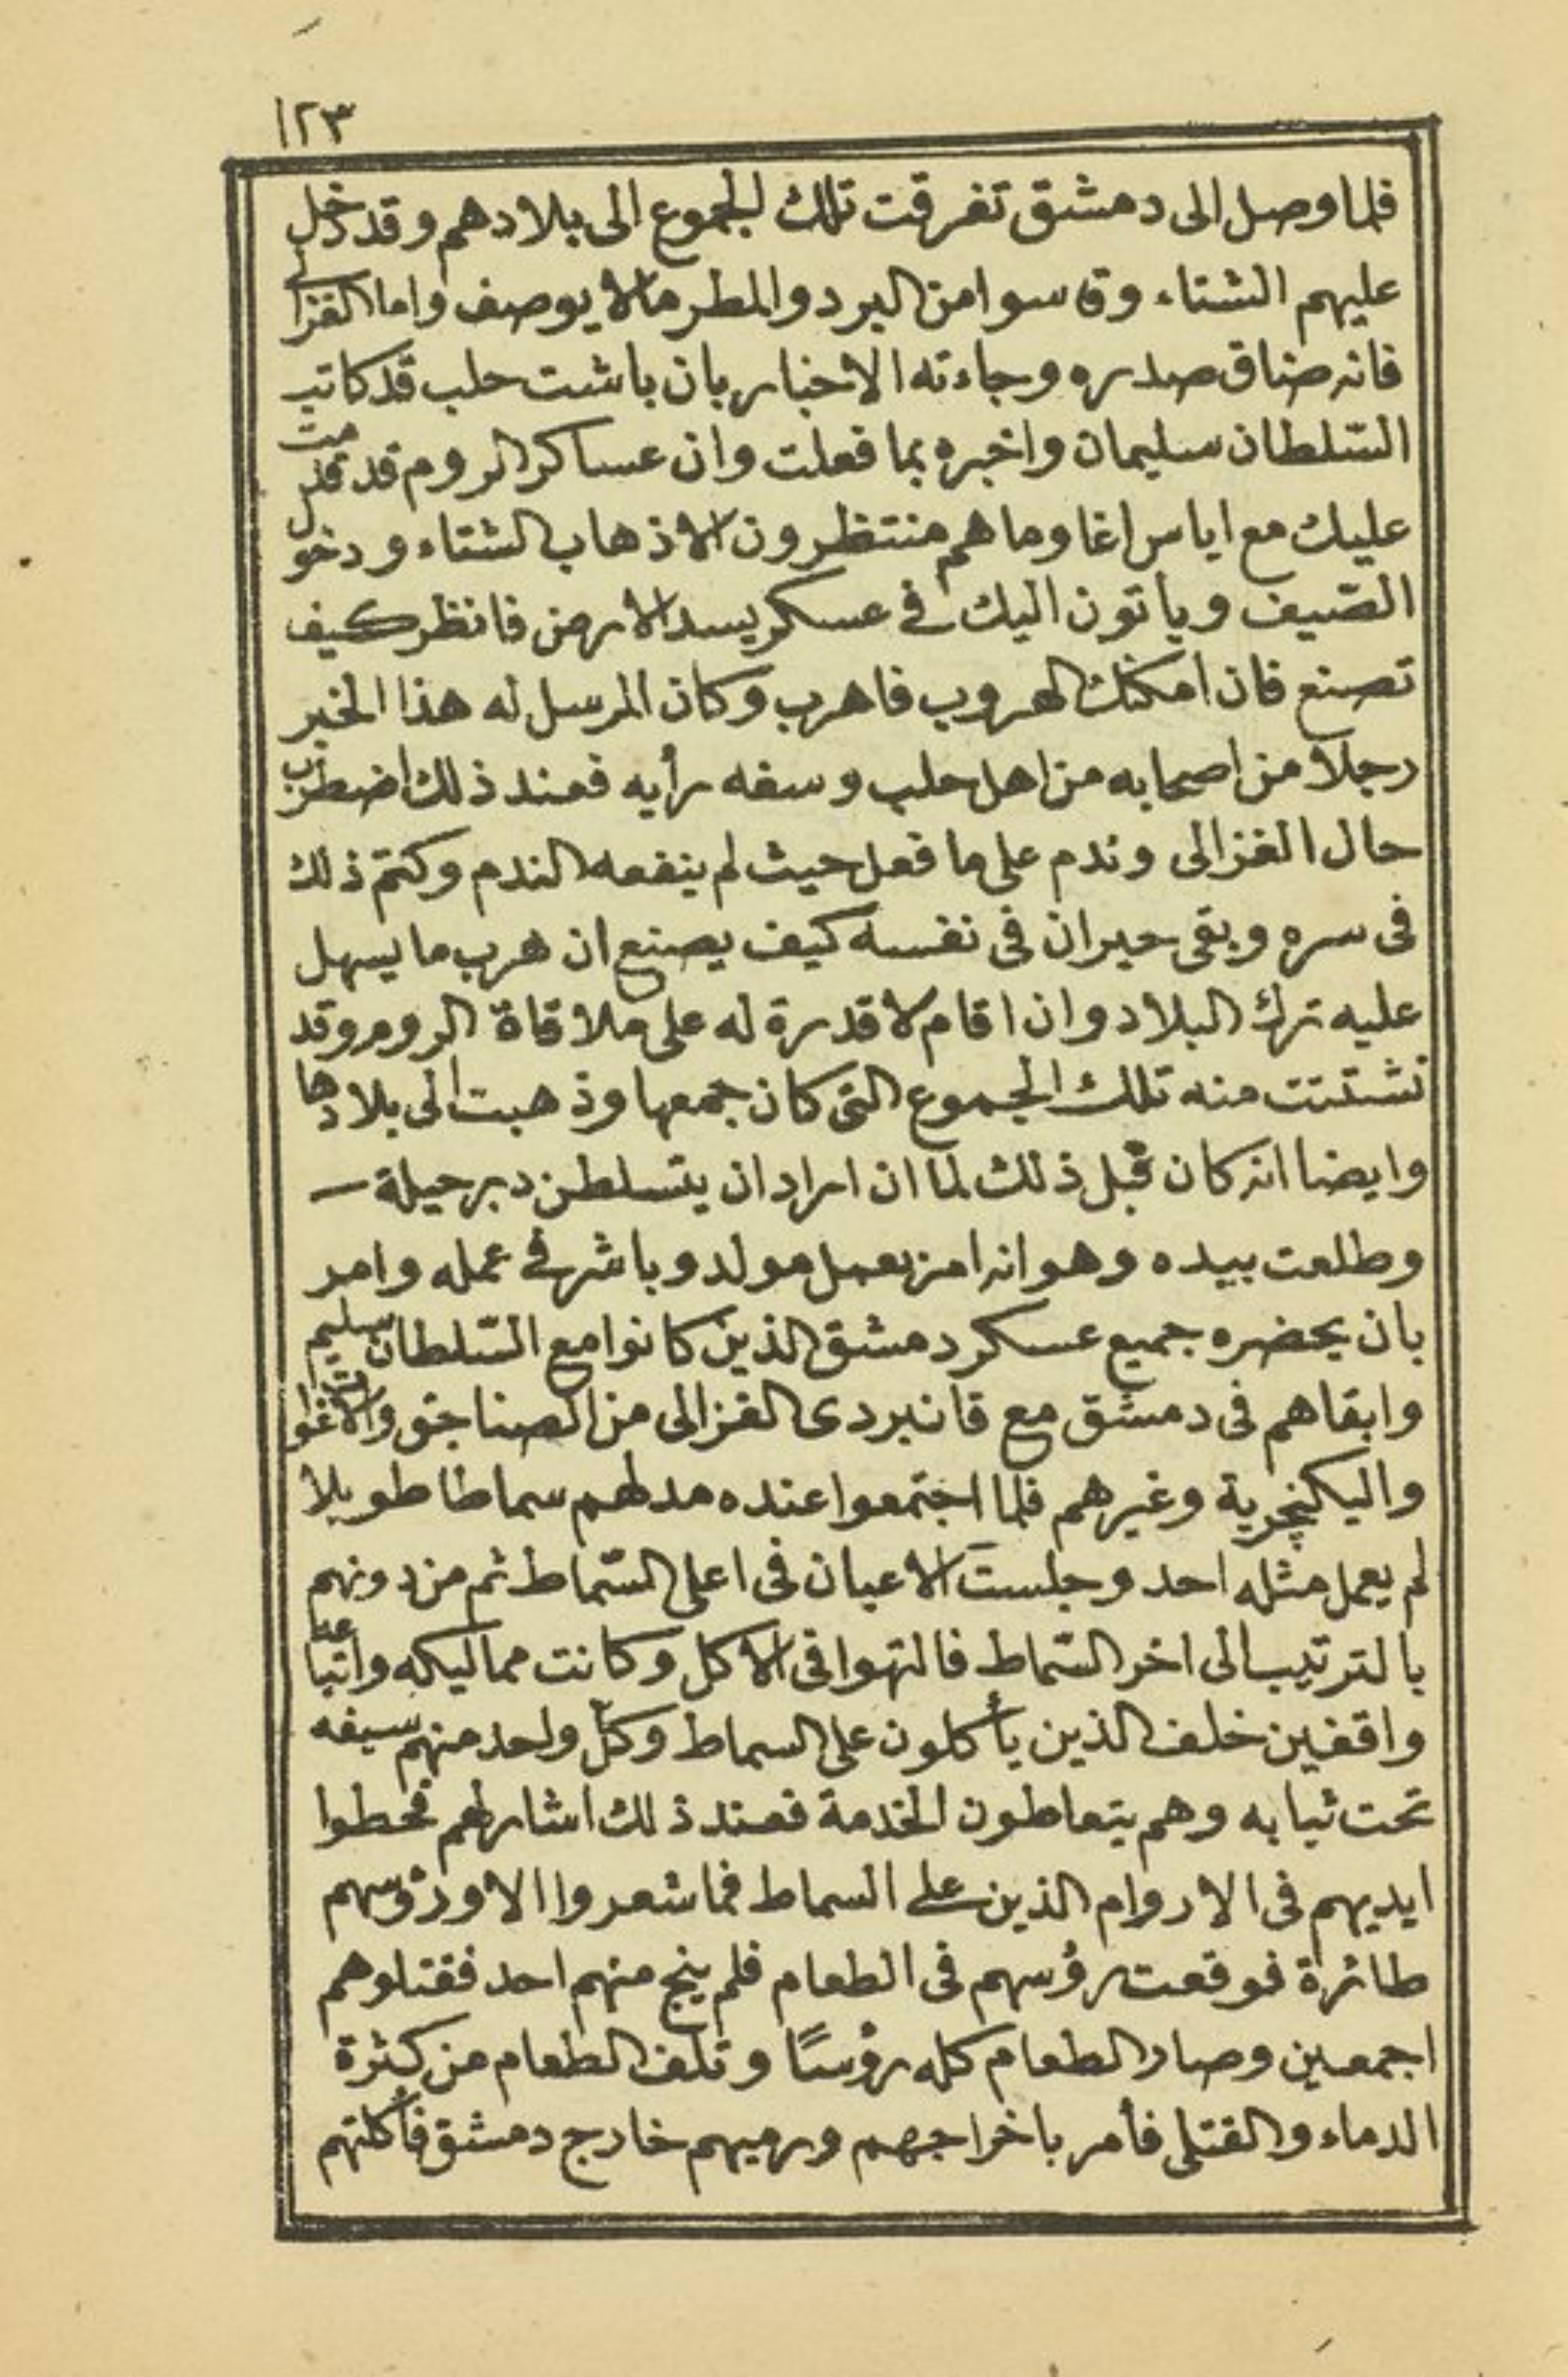 ١٢٣
فلما وصل الى دمشق تفرقت تلك الجموع الى بلادهم وقد دخل
عليهم الشتاء وقاسوا من البرد والمطر مالا يوصف واما الغزالى
فانه ضاق صدره وجاءته الاخبار بان باشت حلب قد كاتب
السّلطان سليمان واخبره بما فعلت وان عساكر الروم قد قدمت
عليك مع اياس اغا وما هم منتظرون الا ذهاب الشتاء ودخول
الصّيف وياتون اليك فى عسكر يسد الارض فانظر كيف
تصنع فان امكنك الهروب فاهرب وكان المرسل له هذا الخبر
رجلا من اصحابه من اهل حلب وسفه رأيه فعند ذلك اضطرب
حال الغزالى وندم على ما فعل حيث لم ينفعه الندم وكتم ذلك
فى سره وبقى حيران فى نفسه كيف يصنع ان هرب ما يسهل
عليه ترك البلاد وان اقام لا قدرة له على ملاقاة الروم وقد
تشتتت منه تلك الجموع التى كان جمعها وذهبت الى بلادها
وايضا انه كان قبل ذلك لما ان اراد ان يتسلطن دبر حيلة
وطلعت بيده وهو انه امر بعمل مولد وباشر فى عمله وامر
بان يحضره جميع عسكر دمشق الذين كانوا مع السّلطان سليم
وابقاهم فى دمشق مع قانبردى الغزالى من الصناجق والاغوات
واليكنچرية وغيرهم فلما اجتمعوا عنده مد لهم سماطا طويلا
لم يعمل مثله احد وجلست الاعيان فى اعلى السّماط ثم من دونهم
بالترتيب الى اخر السّماط فالتهوا فى الاكل وكانت مماليكه واتباعه
واقفين خلف الذين يأكلون على السماط وكلّ واحد منهم سيفه
تحت ثيابه وهم يتعاطون الخدمة فعند ذلك اشار لهم فحطوا
ايديهم فى الاروام الذين على السماط فما شعروا الا ورؤسهم
طائرة فوقعت رؤسهم فى الطعام فلم ينج منهم احد فقتلوهم
اجمعين وصار الطعام كله رؤسًا وتلف الطعام من كثرة
الدماء والقتلى فأمر باخراجهم ورميهم خارج دمشق فأكلتهم